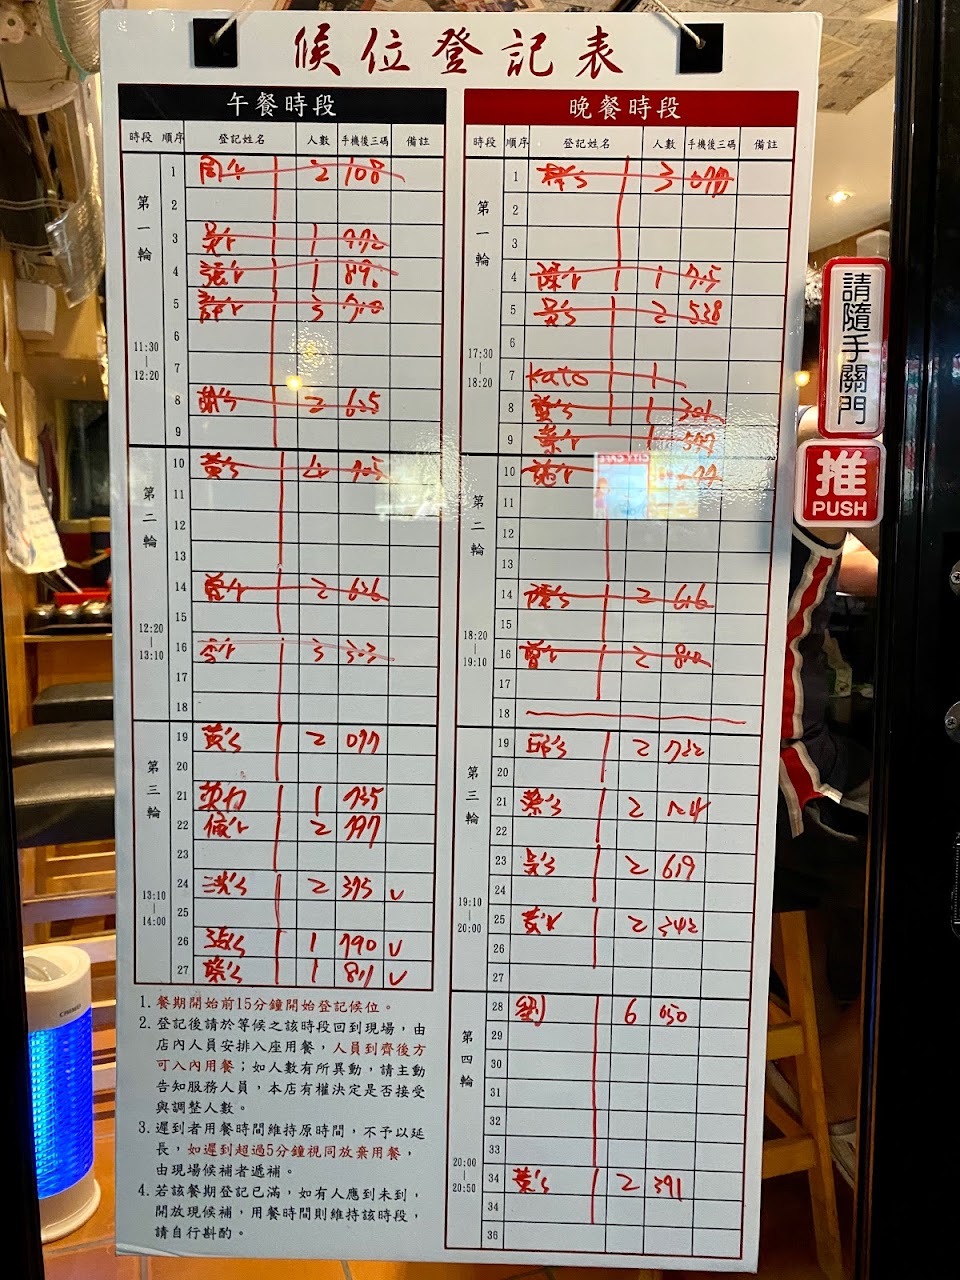 候位登記表
午餐時段
時段 順序 登記姓名 人數 手機後三碼 備註
第一輪
11:30
|
12:20
1 周 2 108
2
3 吳 1 992
4 張 1 89
5 許 3
6
7
8 2 635
9
第二輪
12:20
|
13:10
10 黃's
11
12
13
14 曾 2 636
15
16 李 3 303
17
18
第三輪
13:10
|
14:00
19 黃's 2 077
20
21 1 735
22 2 797
23
24 洪's 2 375 V
25
26 1 790 V
27 葉's 1 811 V
1. 餐期開始前15分鐘開始登記候位。
2. 登記後請於等候之該時段回到現場，由
店內人員安排入座用餐，人員到齊後方
可入內用餐；如人數有所異動，請主動
告知服務人員，本店有權決定是否接受
與調整人數。
3. 遲到者用餐時間維持原時間，不予以延
長，如遲到超過5分鐘視同放棄用餐，
由現場候補者遞補。
4. 若該餐期登記已滿，如有人應到未到，
開放現候補，用餐時間則維持該時段，
請自行斟酌。
晚餐時段
時段 順序 登記姓名 人數 手機後三碼 備註
第一輪
17:30
|
18:20
1 3
2
3
4 陳 1 705
5 吳's 2 538
6
7 Kato 1
8 1 301
9 葉 1 597
第二輪
18:20
|
19:10
10
11
12
13
14 陳's 2 616
15
16 曾 2
17
18
第三輪
19:10
|
20:00
19 邱's 2 722
20
21 蔡's 2
22
23 吳's 2 619
24
25 黃 2 342
26
27
第四輪
20:00
|
20:50
28 劉 6 050
29
30
31
32
33
34 葉's 2 391
34
36
請隨手關門
推
PUSH
CITY CAFE